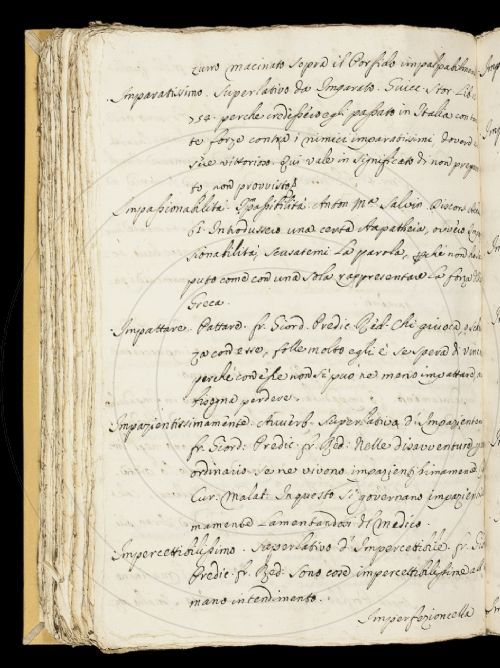 zurro macinato sopra il Porfido impalpabilmen
Imparatissimo. Superlativo da Imparato. Guicc. Stor. Lib.
perche credessèro egli passato in Italia con tan
te forze contra i nimici imparatissimi, dover
sue vittorioso. qui vale in significato di non prepara
to, non provvisto.
Impassionabilità. Impassibilità. Anton M.ª Salvin. Discors.
Introdusséro una certa Apatheia, ovvero Impas
sionabilità, scusatemi la parola, perchè non
puto come con una sola rappresentar la forza
Greca.
Impattare. Pattare. fr. Giord. Predic. Red. Chi giuoca
con esse, folle molto egli è se spera di vinc
perchè con esse non si può ne meno impattare, ma
bisogna perdere.
Impazientissimamente. Avverb. Superlativo d'Impazientem
fr. Giord: Predic. fr. Red: Nelle disavventure
ordinario se ne vivono impazientissimamente.
Cur. Malat. In questo si governano impazientissi
mamente lamentandosi del Medico.
Impercettibilissimo. Superlativo d'Impercettibile. fr. Gio
Predic. fr. Red. Sono cose impercettibilissime
mano intendimento.
Imperfezioncella